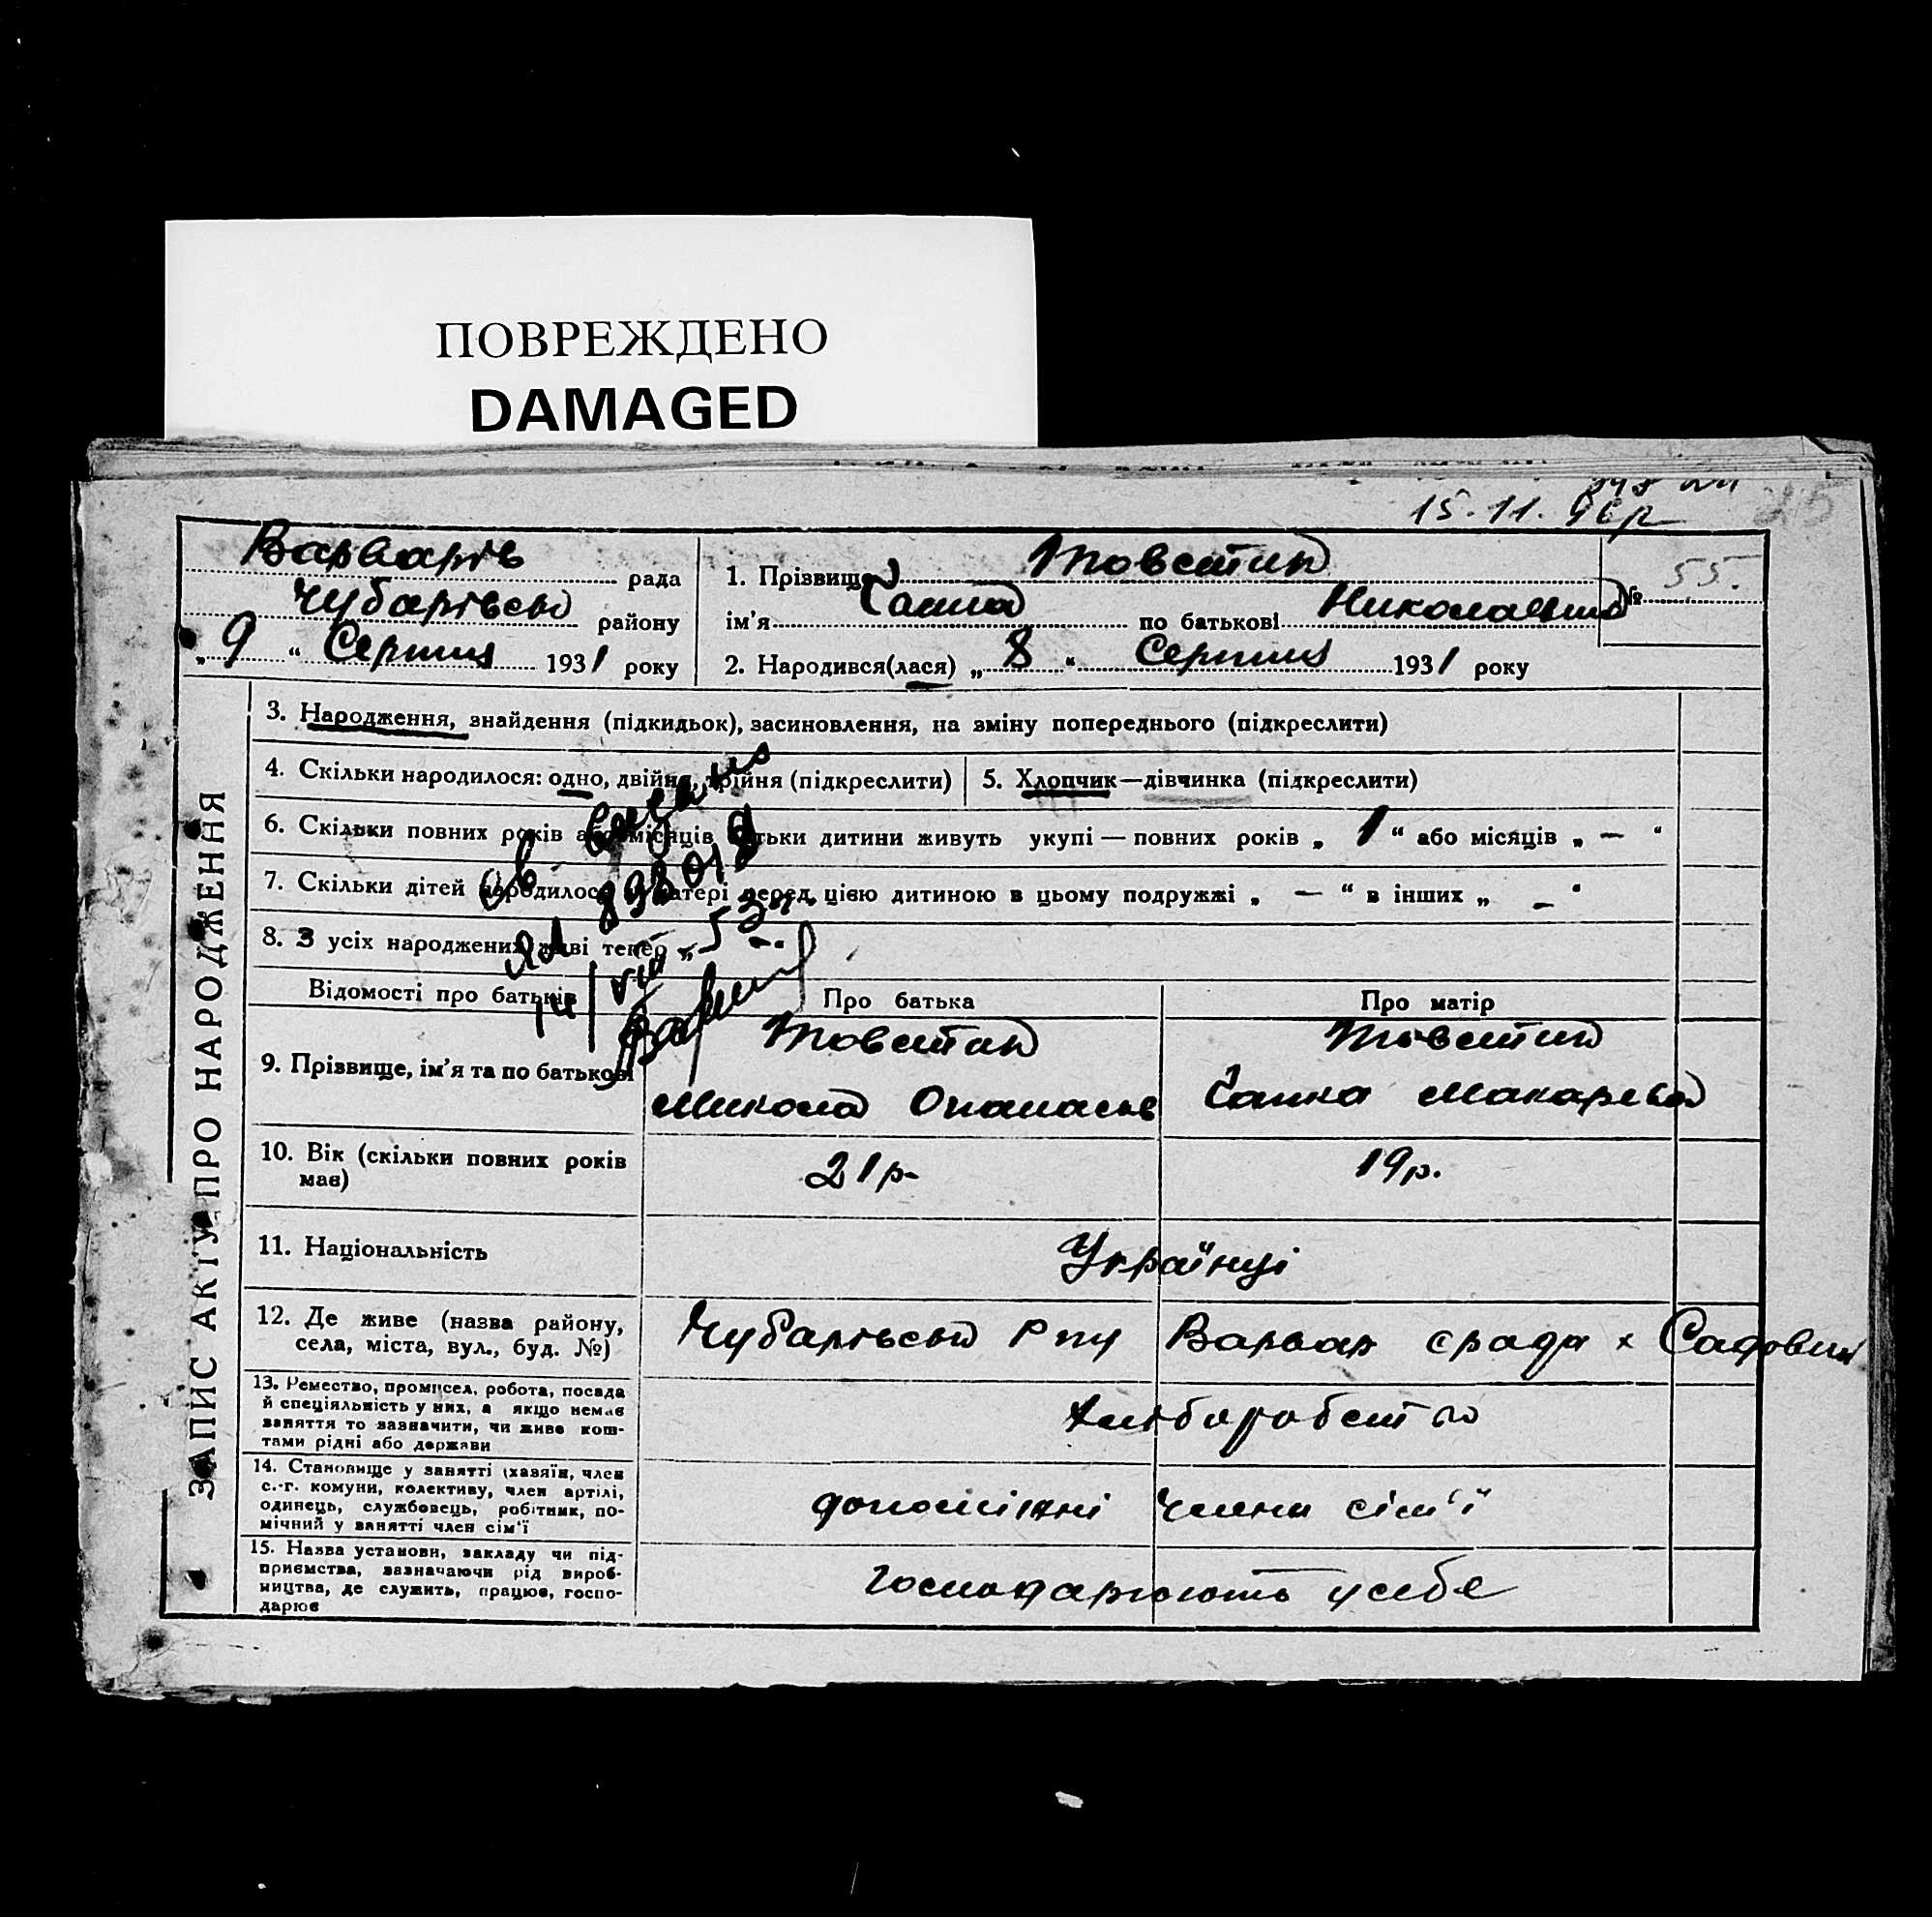 ПОВРЕЖДЕНО
DAMAGED
15.11.
215
Варварів рада
Чубарівськ району
„ 9 “ Серпня 1931 року
1. Прізвище Товстик
ім’я Ганна по батькові Николаевна
№ 55.
2. Народився(лася) „ 8 “ Серпня 1931 року
ЗАПИС АКТУ ПРО НАРОДЖЕННЯ
3. Народження, знайдення (підкидьок), засиновлення, на зміну попереднього (підкреслити)
4. Скільки народилося: одно, двійня, трійня (підкреслити)
5. Хлопчик—дівчинка (підкреслити)
6. Скільки повних років або місяців батьки дитини живуть укупі — повних років „ 1 “ або місяців „ — “
7. Скільки дітей народилося у матері перед цією дитиною в цьому подружжі „ — “ в інших „ — “
8. З усіх народжених живі тепер „
14/VIII 53
Відомості про батьків
Про батька
Про матір
9. Прізвище, ім’я та по батькові
Товстик
Микола Опанасов
Товстик
Ганна Макарівна
10. Вік (скільки повних років має)
21р.
19р.
11. Національність
Українці
12. Де живе (назва району,
села, міста, вул., буд. №)
Чубарівськ Рну Варвар срада х Садовий
13. Ремество, промисел, робота, посада
й спеціяльність у них, а якщо немає
заняття то зазначити, чи живе кош-
тами рідні або держави
Хліборобство
14. Становище у занятті (хазяїн, член
с.-г. комуни, колективу, член артілі,
одинець, службовець, робітник, по-
мічний у занятті член сім’ї
допоміжні члени сім’ї
15. Назва установи, закладу чи під-
приємства, зазначаючи рід вироб-
ництва, де служить, працює, госпо-
дарює
господарюють у себе